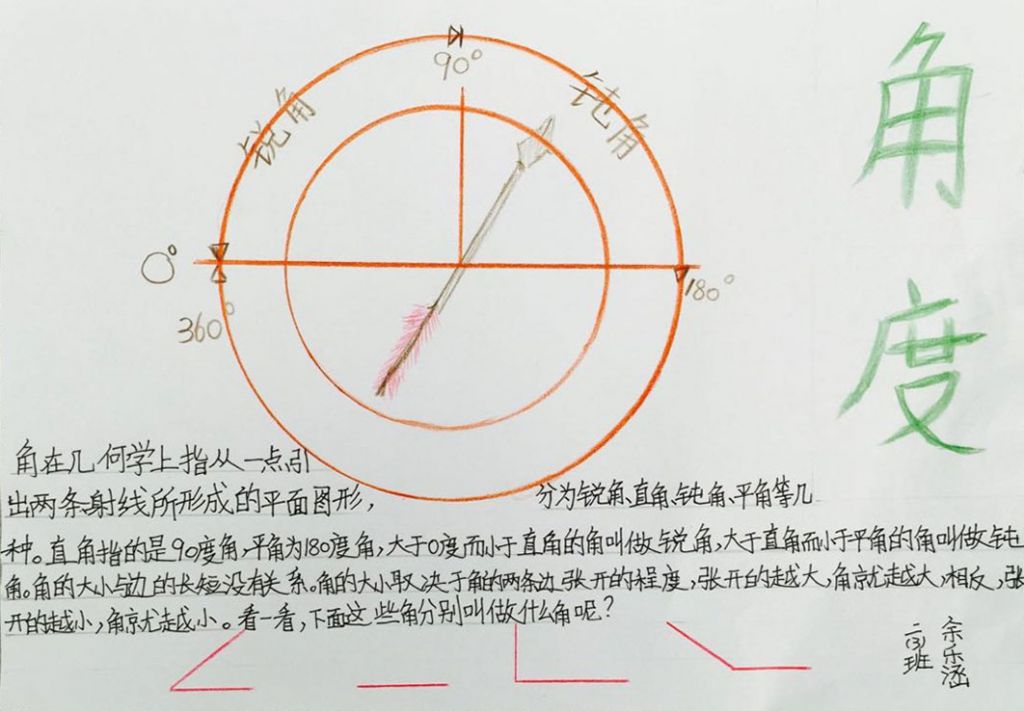 角度
90°
锐角
钝角
0°
180°
360°
角在几何学上指从一点引
出两条射线所形成的平面图形，
分为锐角、直角、钝角、平角等几
种。直角指的是90度角，平角为180度角，大于0度而小于直角的角叫做锐角，大于直角而小于平角的角叫做钝
角。角的大小与边的长短没有关系。角的大小取决于角的两条边张开的程度，张开的越大，角就越大，相反，张
开的越小，角就越小。看一看，下面这些角分别叫做什么角呢？
二(3)班
余乐涵